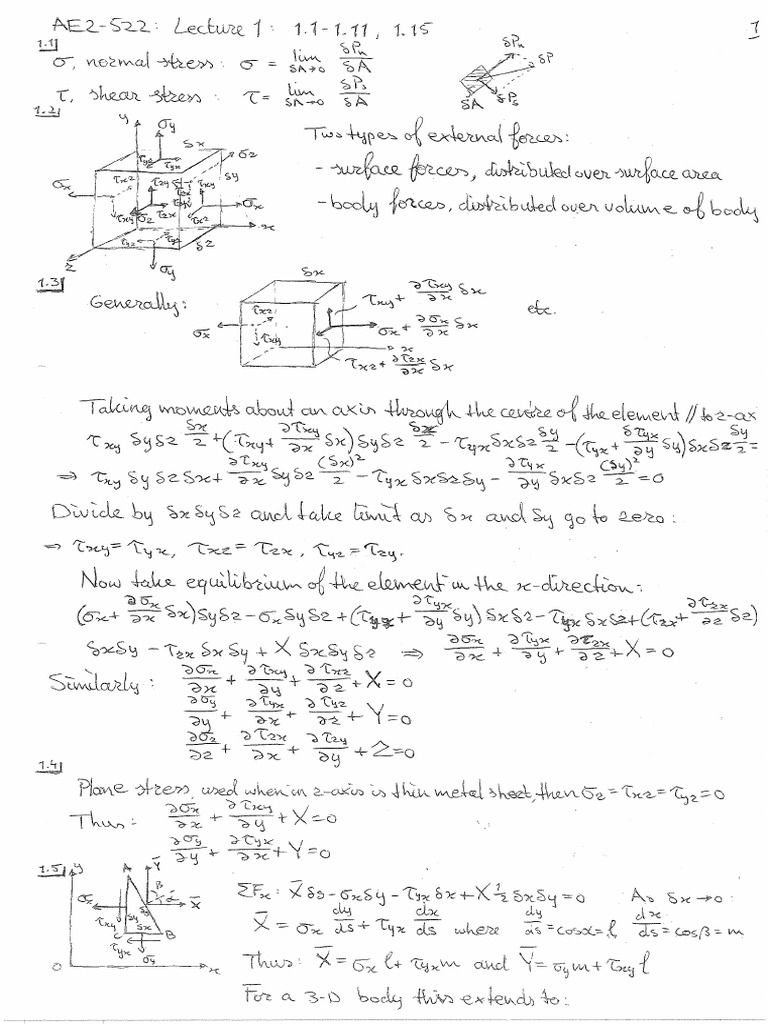 AE2-522: Lecture 1: 1.1-1.11, 1.15
1
1.1
σ, normal stress: σ = lim δA→0 δPn/δA
τ, shear stress: τ = lim δA→0 δPs/δA
δPn
δP
δPs
δA
1.2
Two types of external forces:
- surface forces, distributed over surface area
- body forces, distributed over volume of body
y
σy
δx
σz
δy
σx
σx
x
δz
z
σy
1.3
Generally:
δx
τxz
τxy
σx
τxy + ∂τxy/∂x δx
σx + ∂σx/∂x δx
x
τxz + ∂τzx/∂x δx
etc.
Taking moments about an axis through the centre of the element // to z-ax
τxy δyδz δx/2 + (τxy + ∂τxy/∂x δx) δyδz δx/2 - τyx δxδz δy/2 - (τyx + δτyx/∂y δy) δxδz δy/2 =
⇒ τxy δyδzδx + ∂τxy/∂x δyδz (δx)²/2 - τyx δxδzδy - ∂τyx/∂y δxδz (δy)²/2 = 0
Divide by δxδyδz and take limit as δx and δy go to zero:
⇒ τxy = τyx, τxz = τzx, τyz = τzy.
Now take equilibrium of the element in the x-direction:
(σx + ∂σx/∂x δx) δyδz - σx δyδz + (τyx + ∂τyx/∂y δy) δxδz - τyx δxδz + (τzx + ∂τzx/∂z δz)
δxδy - τzx δxδy + X δxδyδz ⇒ ∂σx/∂x + ∂τyx/∂y + ∂τzx/∂z + X = 0
Similarly: ∂σx/∂x + ∂τxy/∂y + ∂τxz/∂z + X = 0
∂σy/∂y + ∂τyx/∂x + ∂τyz/∂z + Y = 0
∂σz/∂z + ∂τzx/∂x + ∂τzy/∂y + Z = 0
1.4
Plane stress, used when in z-axis is thin metal sheet, then σz = τxz = τyz = 0
Thus: ∂σx/∂x + ∂τxy/∂y + X = 0
∂σy/∂y + ∂τyx/∂x + Y = 0
1.5
y
A
Ȳ
σx
X̄
δs
τxy
δy
δx
B
τyx
σy
O
x
ΣFx: X̄δs - σxδy - τyxδx + X ½ δxδy = 0 As δx→0:
X̄ = σx dy/ds + τyx dx/ds where dy/ds = cosα = l, dx/ds = cosβ = m
Thus: X̄ = σx l + τyx m and Ȳ = σy m + τxy l
For a 3-D body this extends to: